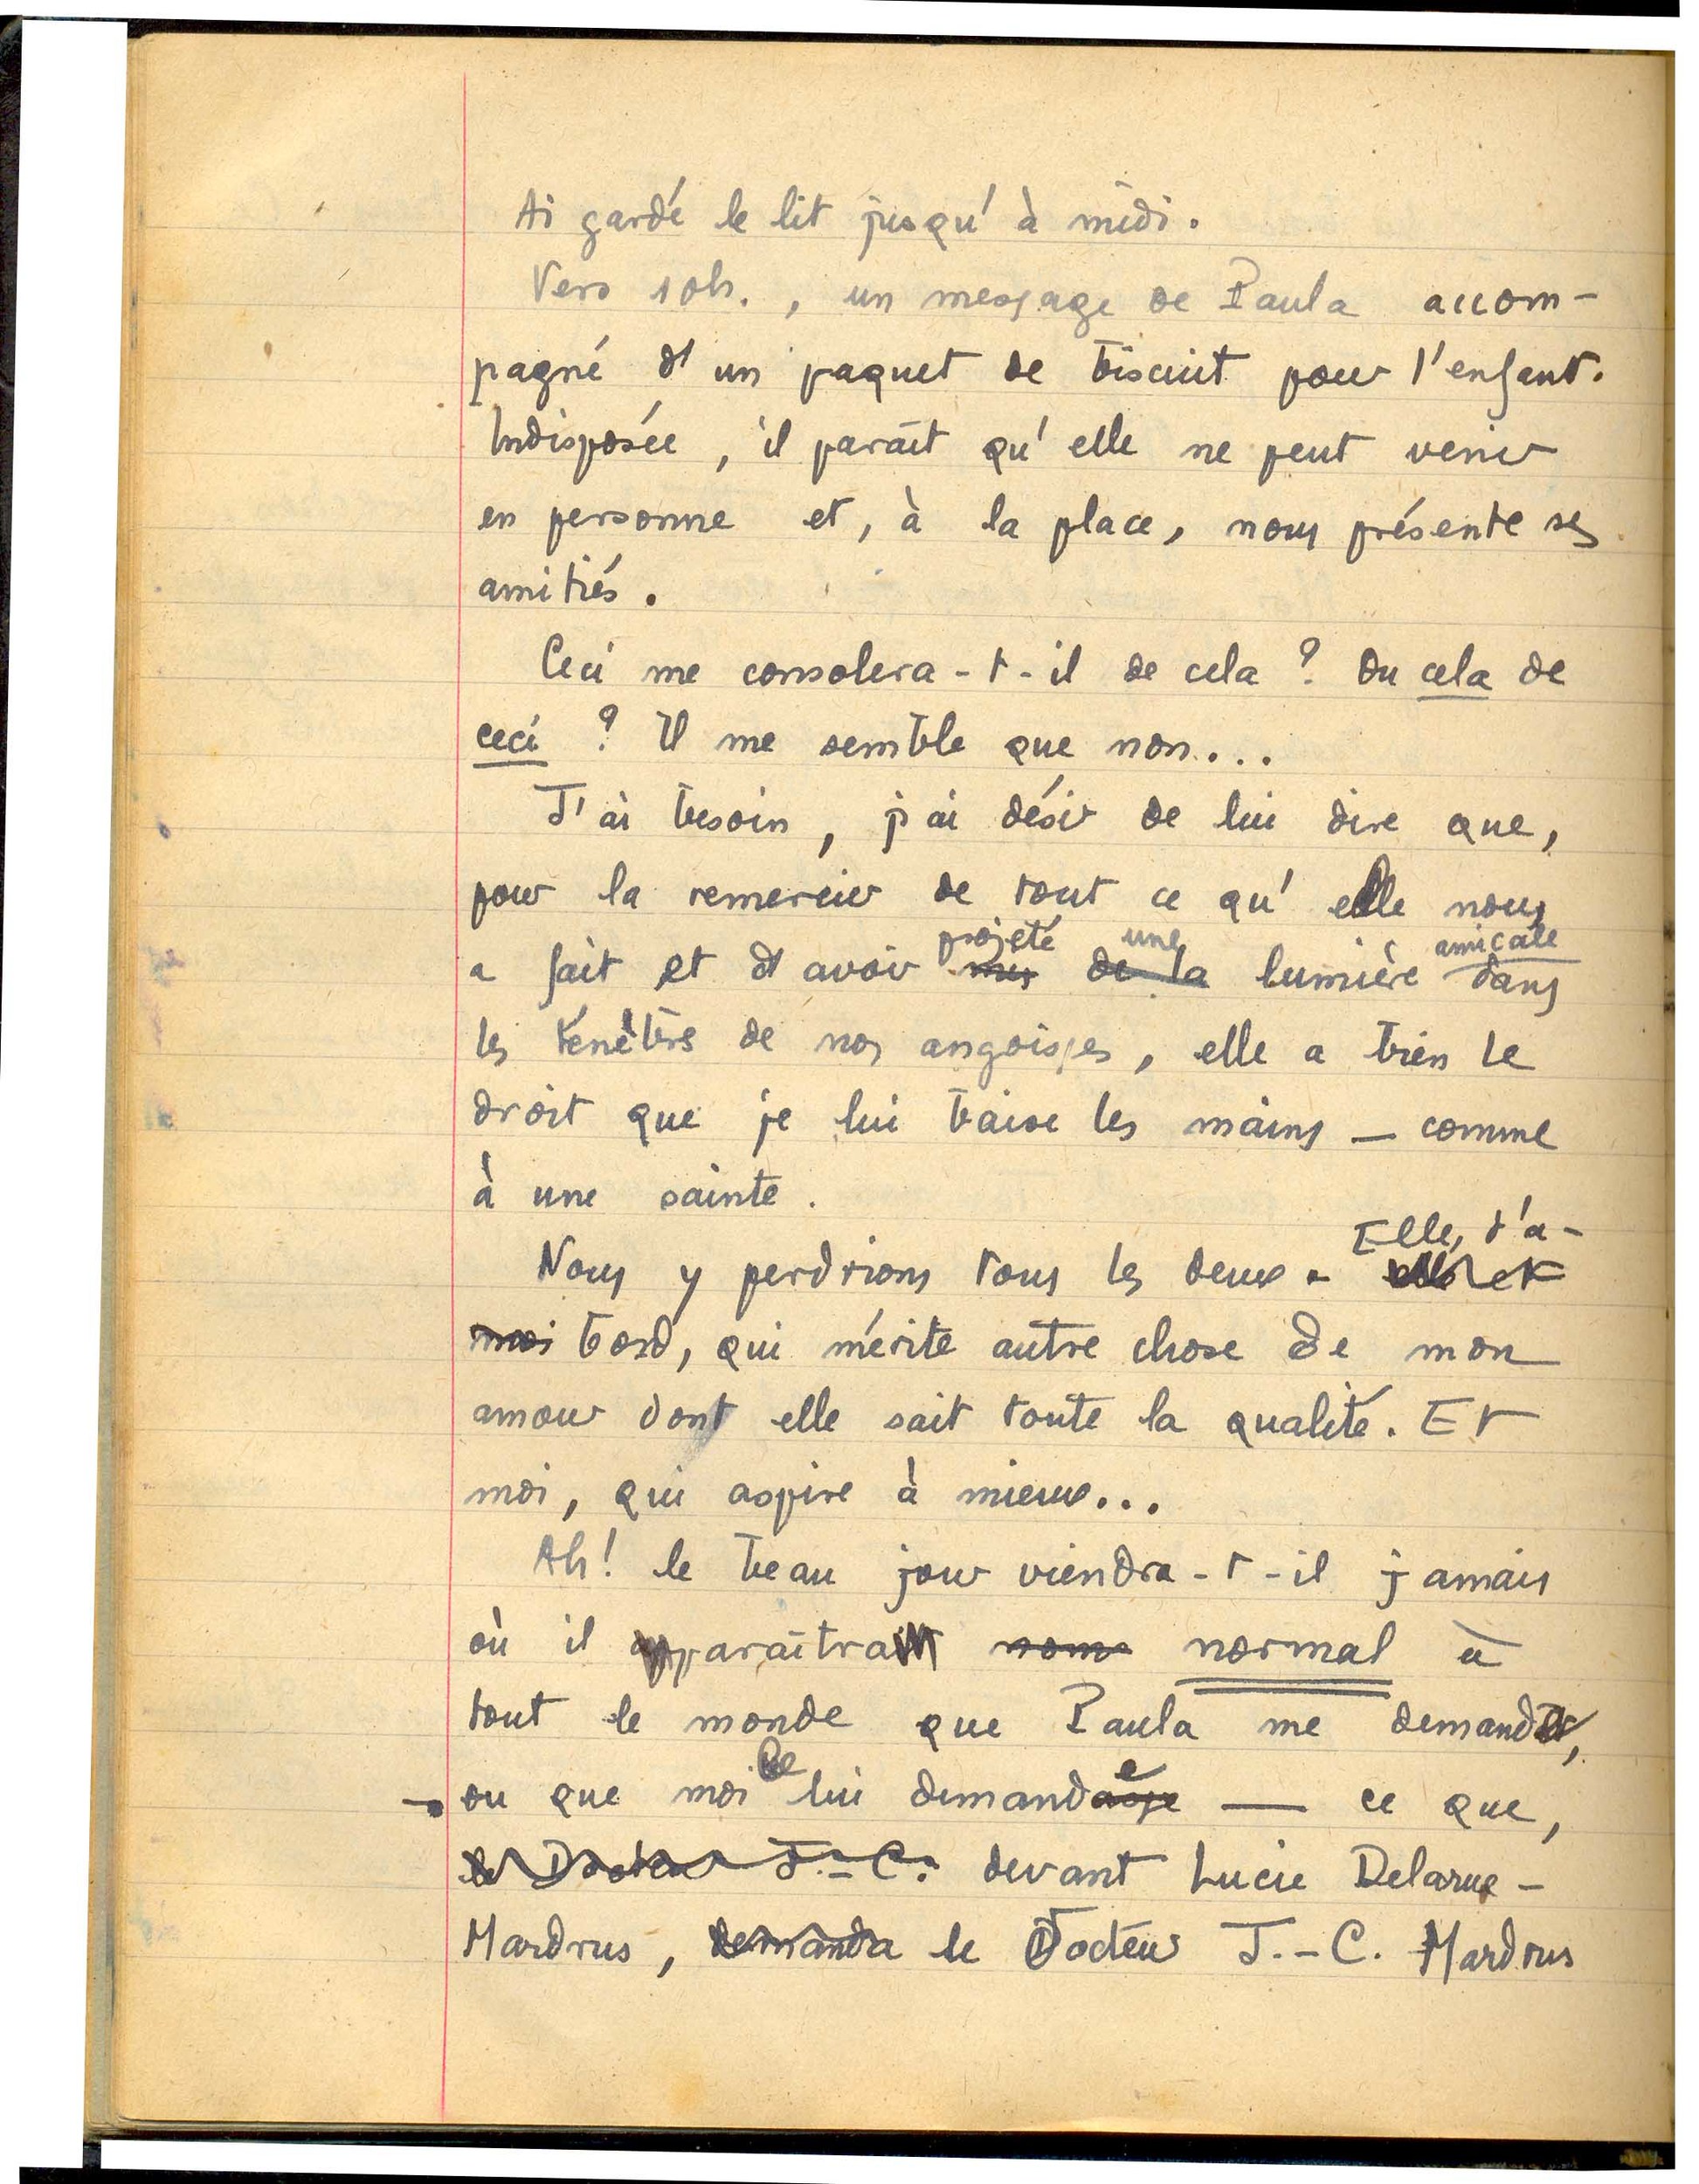 Ai gardé le lit jusqu'à midi.
Vers 10h., un message de Paula accom-
pagné d'un paquet de biscuit pour l'enfant.
Indisposée, il paraît qu'elle ne peut venir
en personne et, à la place, nous présente ses
amitiés.
Ceci me consolera-t-il de cela ? Ou cela de
ceci ? Il me semble que non...
J'ai besoin, j'ai désir de lui dire que,
pour la remercier de tout ce qu'elle nous
projeté une amicale
a fait et d'avoir mis de la lumière dans
les ténèbres de nos angoisses, elle a bien le
droit que je lui baise les mains — comme
à une sainte.
Elle, d'a-
Nous y perdrions tous les deux. elle et
moi bord, qui mérite autre chose de mon
amour dont elle sait toute la qualité. Et
moi, qui aspire à mieux...
Ah! le beau jour viendra-t-il jamais
où il apparaîtra normal à
tout le monde que Paula me demande,
ou que moi je lui demande — ce que,
le Docteur J.-C. devant Lucie Delarue-
Mardrus, demanda le Docteur J.-C. Mardrus